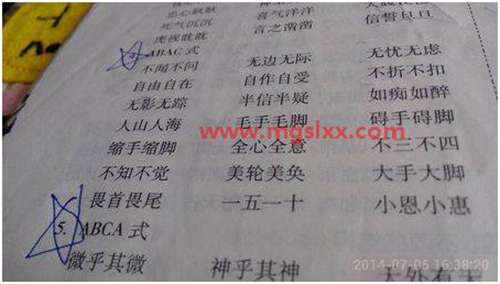 忠心耿耿
死气沉沉 喜气洋洋
虎视眈眈 言之凿凿 信誓旦旦
ABAC 式
不闻不问 无边无际 无忧无虑
自由自在 自作自受 不折不扣
无影无踪 半信半疑 如痴如醉
人山人海 毛手毛脚 碍手碍脚
www.mgslxx.com
缩手缩脚 全心全意 不三不四
不知不觉 美轮美奂 大手大脚
畏首畏尾 一五一十 小恩小惠
5. ABCA 式
微乎其微 神乎其神 天外有天
2014-07-05 16:38:20